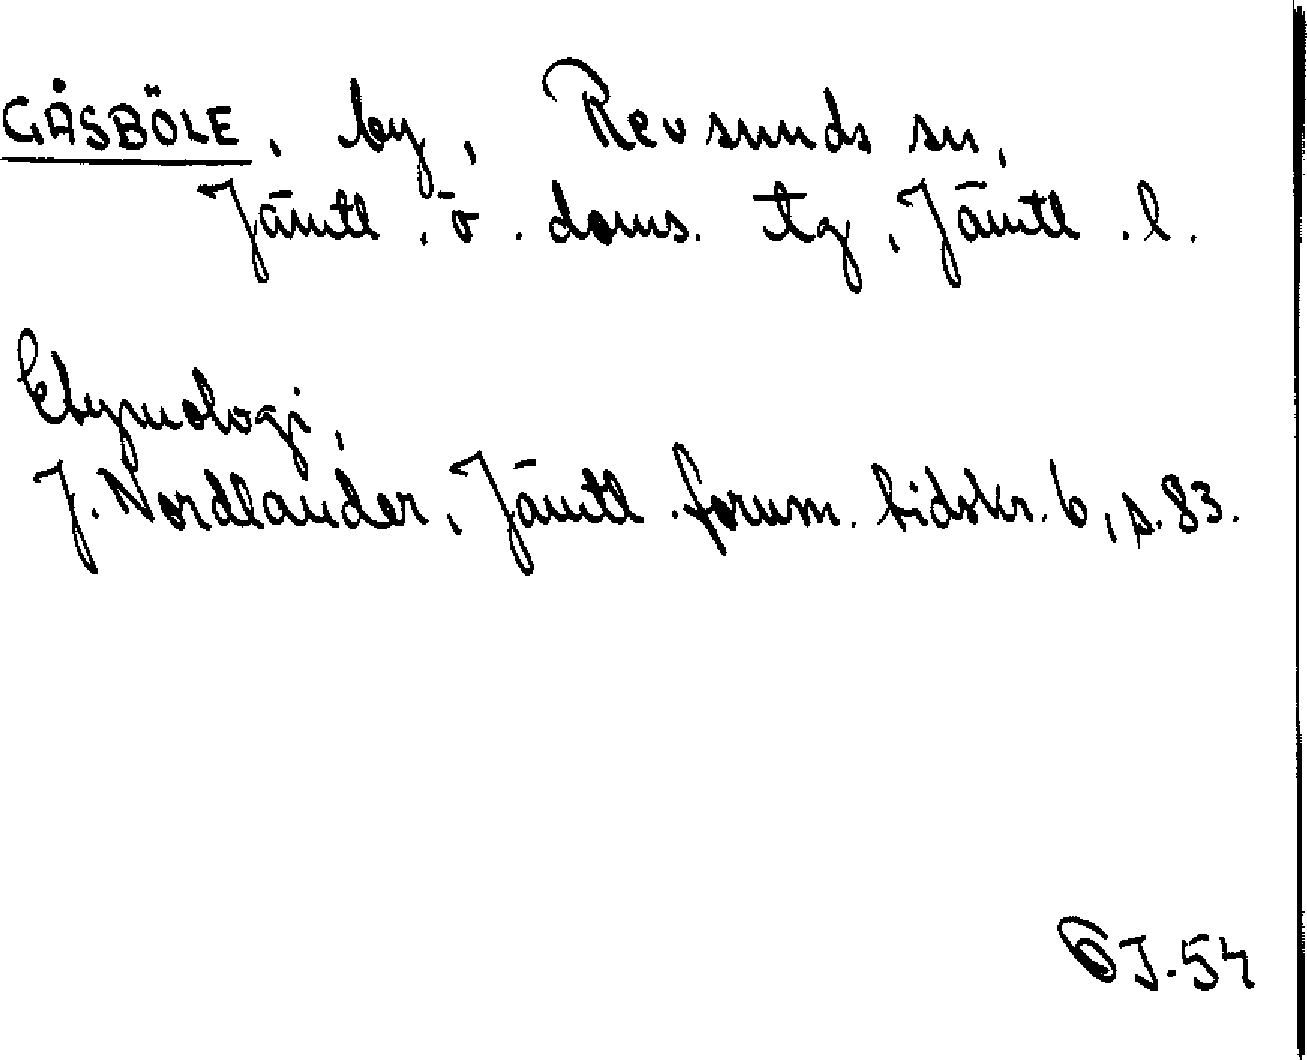 GÅSBÖLE, by, Revsunds sn,
Jämtl. ö. doms. tg, Jämtl. l.
Etymologi,
J. Nordlander, Jämtl. fornm. tidskr. 6, s. 83.
J-54